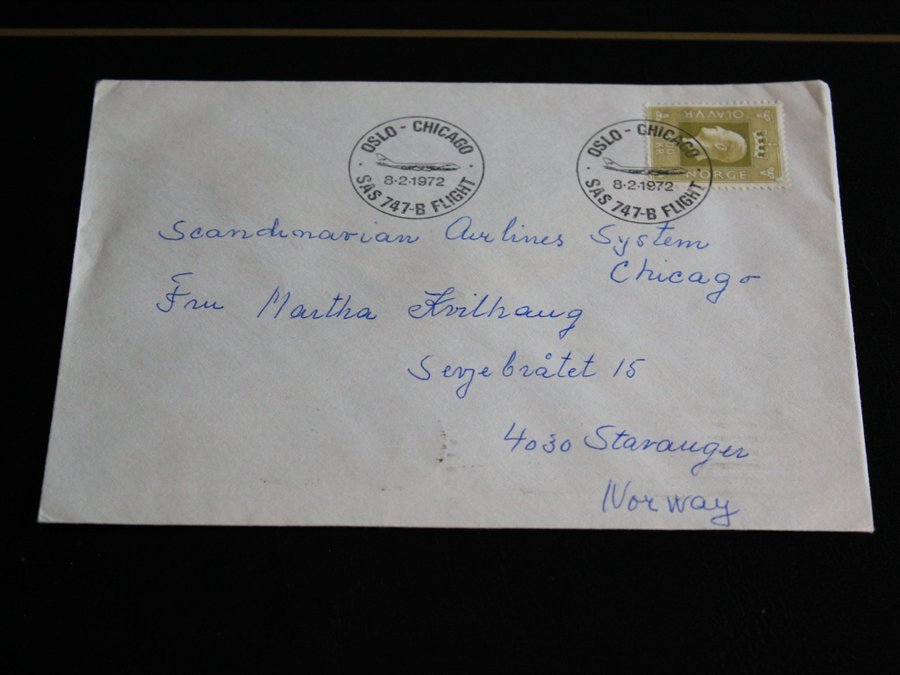 OSLO - CHICAGO
8·2·1972
SAS 747-B FLIGHT
OSLO - CHICAGO
8·2·1972
SAS 747-B FLIGHT
OLAV V R
NORGE
Scandinavian Airlines System
Chicago
Fru Martha Kvilhaug
15
4030 Stavanger
Norway